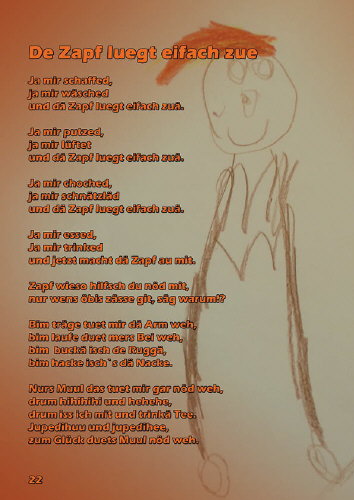 De Zapf luegt eifach zue
Ja mir schaffed,
ja mir wäsched
und dä Zapf luegt eifach zuä.
Ja mir putzed,
ja mir lüftet
und dä Zapf luegt eifach zuä.
Ja mir choched,
ja mir schnätzläd
und dä Zapf luegt eifach zuä.
Ja mir essed,
Ja mir trinked
und jetzt macht dä Zapf au mit.
Zapf wieso hilfsch du nöd mit,
nur wens öbis zässe git, säg warum!?
Bim träge tuet mir dä Arm weh,
bim laufe duet mers Bei weh,
bim buckä isch de Ruggä,
bim hacke isch`s dä Nacke.
Nurs Muul das tuet mir gar nöd weh,
drum hihihihi und hehehe,
drum iss ich mit und trinkä Tee.
Jupedihuu und jupedihee,
zum Glück duets Muul nöd weh.
22